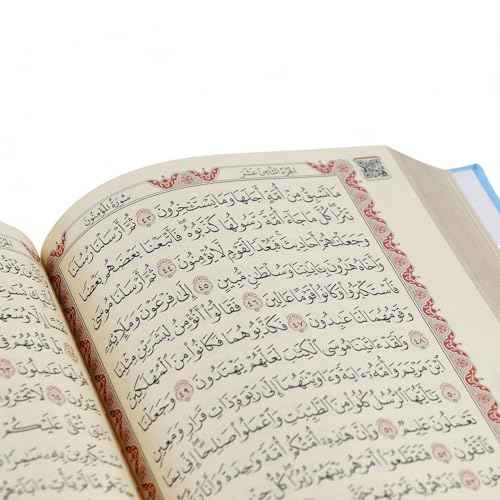 سُورَةُ المُؤْمِنُون
الجُزْءُ الثَّامِنَ عَشَرَ
مَا تَسْبِقُ مِنْ أُمَّةٍ أَجَلَهَا وَمَا يَسْتَـْٔخِرُونَ ٤٣ ثُمَّ أَرْسَلْنَا رُسُلَنَا
تَتْرَا كُلَّ مَا جَآءَ أُمَّةً رَّسُولُهَا كَذَّبُوهُ فَأَتْبَعْنَا بَعْضَهُم بَعْضًا
وَجَعَلْنَٰهُمْ أَحَادِيثَ فَبُعْدًا لِّقَوْمٍ لَّا يُؤْمِنُونَ ٤٤ ثُمَّ أَرْسَلْنَا مُوسَىٰ
وَأَخَاهُ هَٰرُونَ بِـَٔايَٰتِنَا وَسُلْطَٰنٍ مُّبِينٍ ٤٥ إِلَىٰ فِرْعَوْنَ وَمَلَإِيْهِۦ
فَٱسْتَكْبَرُوا۟ وَكَانُوا۟ قَوْمًا عَالِينَ ٤٦ فَقَالُوٓا۟ أَنُؤْمِنُ لِبَشَرَيْنِ مِثْلِنَا
وَقَوْمُهُمَا لَنَا عَٰبِدُونَ ٤٧ فَكَذَّبُوهُمَا فَكَانُوا۟ مِنَ ٱلْمُهْلَكِينَ ٤٨
وَلَقَدْ ءَاتَيْنَا مُوسَى ٱلْكِتَٰبَ لَعَلَّهُمْ يَهْتَدُونَ ٤٩ وَجَعَلْنَا
ٱبْنَ مَرْيَمَ وَأُمَّهُۥٓ ءَايَةً وَءَاوَيْنَٰهُمَآ إِلَىٰ رَبْوَةٍ ذَاتِ قَرَارٍ وَمَعِينٍ ٥٠
يَٰٓأَيُّهَا ٱلرُّسُلُ كُلُوا۟ مِنَ ٱلطَّيِّبَٰتِ وَٱعْمَلُوا۟ صَٰلِحًا إِنِّى بِمَا
تَعْمَلُونَ عَلِيمٌ ٥١ وَإِنَّ هَٰذِهِۦٓ أُمَّتُكُمْ أُمَّةً وَٰحِدَةً وَأَنَا۠
فَٱتَّقُونِ ٥٢ فَتَقَطَّعُوٓا۟ أَمْرَهُم بَيْنَهُمْ زُبُرًا كُلُّ